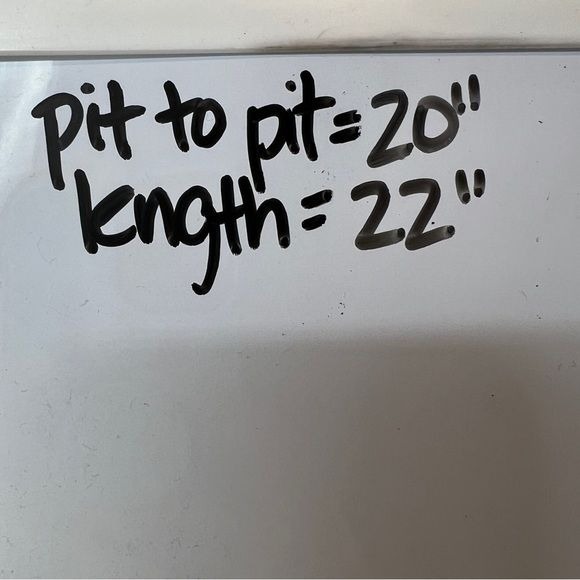 pit to pit = 20"
length = 22"